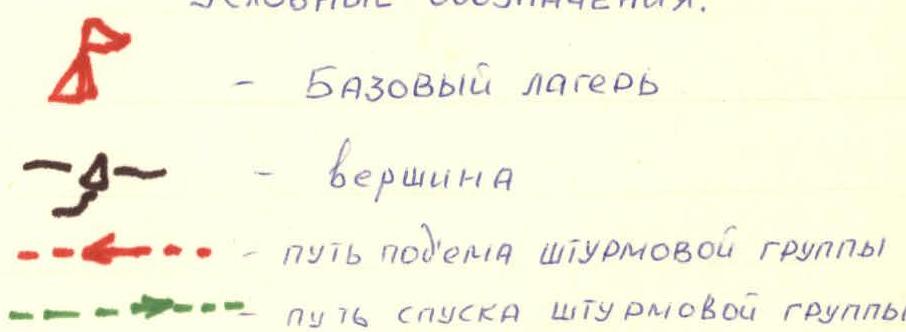 Условные обозначения:
- Базовый лагерь
- вершина
- путь под'ема штурмовой группы
- путь спуска штурмовой группы